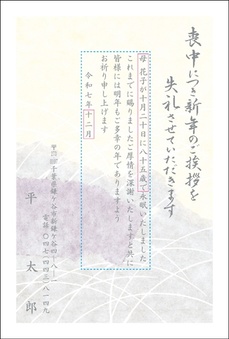 喪中につき新年のご挨拶を
失礼させていただきます
母 花子が十月二十日に八十五歳で永眠いたしました
これまでに賜りましたご厚情を深謝いたしますと共に
皆様には明年もご多幸の年でありますよう
お祈り申し上げます
令和七年 十二月
平 太郎